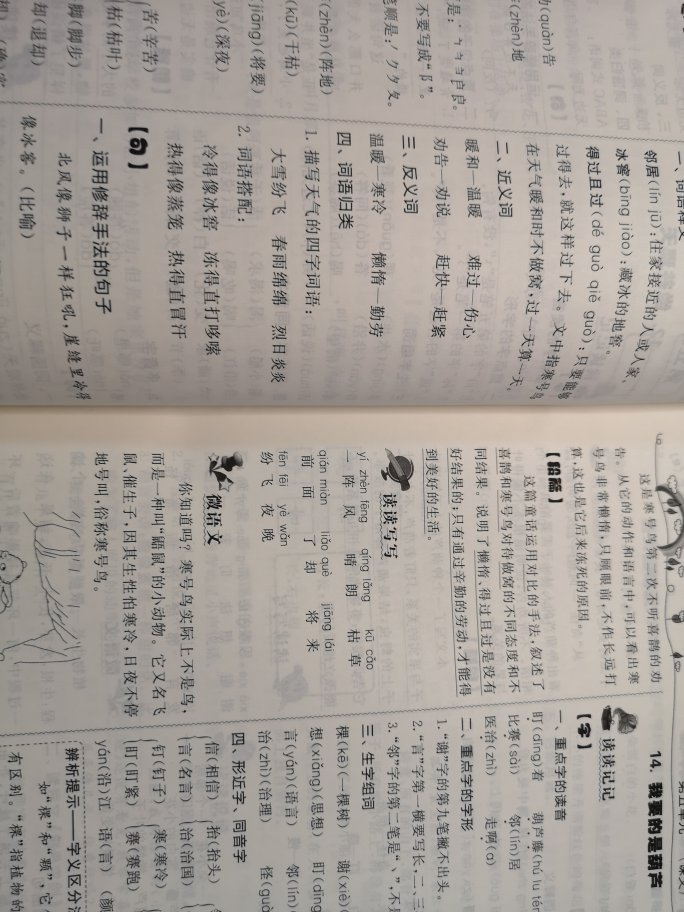 劝(quàn)告
阵(zhèn)地
不要写成“阝”。
阵(zhèn)(阵地)
(kū)(干枯)
(jiāng)(将要)
yè)(深夜)
苦(辛苦)
枯(枯叶)
脚(脚步)
却(退却)
一、词语释义
邻居(lín jū):住家接近的人或人家。
冰窖(bīng jiào):藏冰的地窖。
得过且过(dé guò qiě guò):只要能够
过得去,就这样过下去。文中指寒号鸟
在天气暖和时不做窝,过一天算一天。
二、近义词
暖和—温暖 难过—伤心
劝告—劝说 赶快—赶紧
三、反义词
温暖—寒冷 懒惰—勤劳
四、词语归类
1. 描写天气的四字词语:
大雪纷飞 春雨绵绵 烈日炎炎
2. 词语搭配:
冷得像冰窖 冻得直打哆嗦
热得像蒸笼 热得直冒汗
【句】
一、运用修辞手法的句子
北风像狮子一样狂吼,崖缝里冷得
像冰窖。(比喻)
这是寒号鸟第二次不听喜鹊的劝
告。从它的动作和语言中,可以看出寒
号鸟非常懒惰,只顾眼前,不作长远打
算,这也是它后来冻死的原因。
这篇童话运用对比的手法,叙述了
喜鹊和寒号鸟对待做窝的不同态度和不
同结果。说明了懒惰、得过且过是没有
好结果的;只有通过辛勤的劳动,才能得
到美好的生活。
读读写写
yí zhèn fēng qíng lǎng kū cǎo
一阵风 晴朗 枯草
qián miàn liǎo què jiāng lái
前面 了却 将来
fēn fēi yè wǎn
纷飞 夜晚
微语文
你知道吗?寒号鸟实际上不是鸟,
而是一种叫“鼯鼠”的小动物。它又名飞
鼠、催生子,因其生性怕寒冷,日夜不停
地号叫,俗称寒号鸟。
14. 我要的是葫芦
读读记记
【字】
一、重点字的读音
盯(dīng)着 葫芦藤(hú lu téng
比赛(sài) 邻(lín)居
医治(zhì) 走啊(a)
二、重点字的字形
1.“谢”字的第九笔撇不出头。
2.“言”字第一横要写长,二、三
3.“邻”字的第二笔是“丶”,不是
三、生字组词
棵(kē)(一棵树) 谢(xiè)(
想(xiǎng)(思想) 盯(dīng
言(yán)(语言) 邻(lín)(
治(zhì)(治理) 怪(guà
四、形近字、同音字
信(相信) 抬(抬头)
言(名言) 治(治国)
钉(钉子) 寒(寒冷)
盯(盯紧) 赛(赛跑)
yán(沿)江 语(言) (颜
辨析提示——字义区分法
如“棵”和“颗”,它
有区别。“棵”指植物的